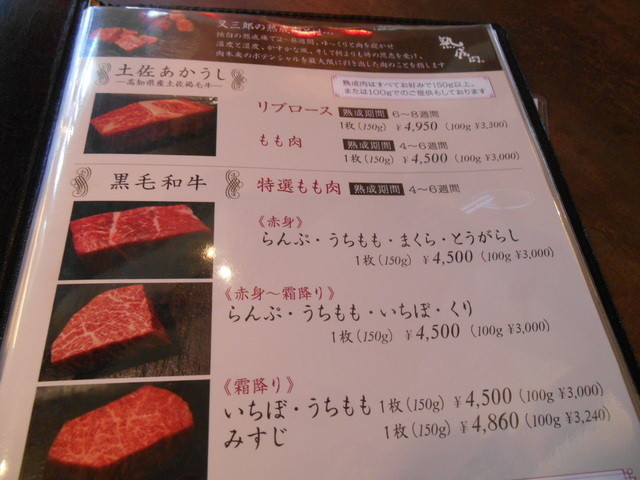 又三郎の熟成
独自の熟成庫で2〜8週間、ゆっくりと肉を寝かせ
温度と湿度、かすかな風、そして何よりも時の恩恵を受け、
肉本来のポテンシャルを最大限に引き出した肉のことを指します
熟成肉
土佐あかうし
―高知県産土佐褐毛牛―
熟成肉はすべてお好みで150g以上、
または100gでのご提供もしております
リブロース 熟成期間 6〜8週間
1枚(150g) ¥4,950 (100g ¥3,300)
もも肉 熟成期間 4〜6週間
1枚(150g) ¥4,500 (100g ¥3,000)
黒毛和牛 特選もも肉 熟成期間 4〜6週間
《赤身》
らんぷ・うちもも・まくら・とうがらし
1枚(150g) ¥4,500 (100g ¥3,000)
《赤身〜霜降り》
らんぷ・うちもも・いちぼ・くり
1枚(150g) ¥4,500 (100g ¥3,000)
《霜降り》
いちぼ・うちもも 1枚(150g) ¥4,500 (100g ¥3,000)
みすじ 1枚(150g) ¥4,860 (100g ¥3,240)